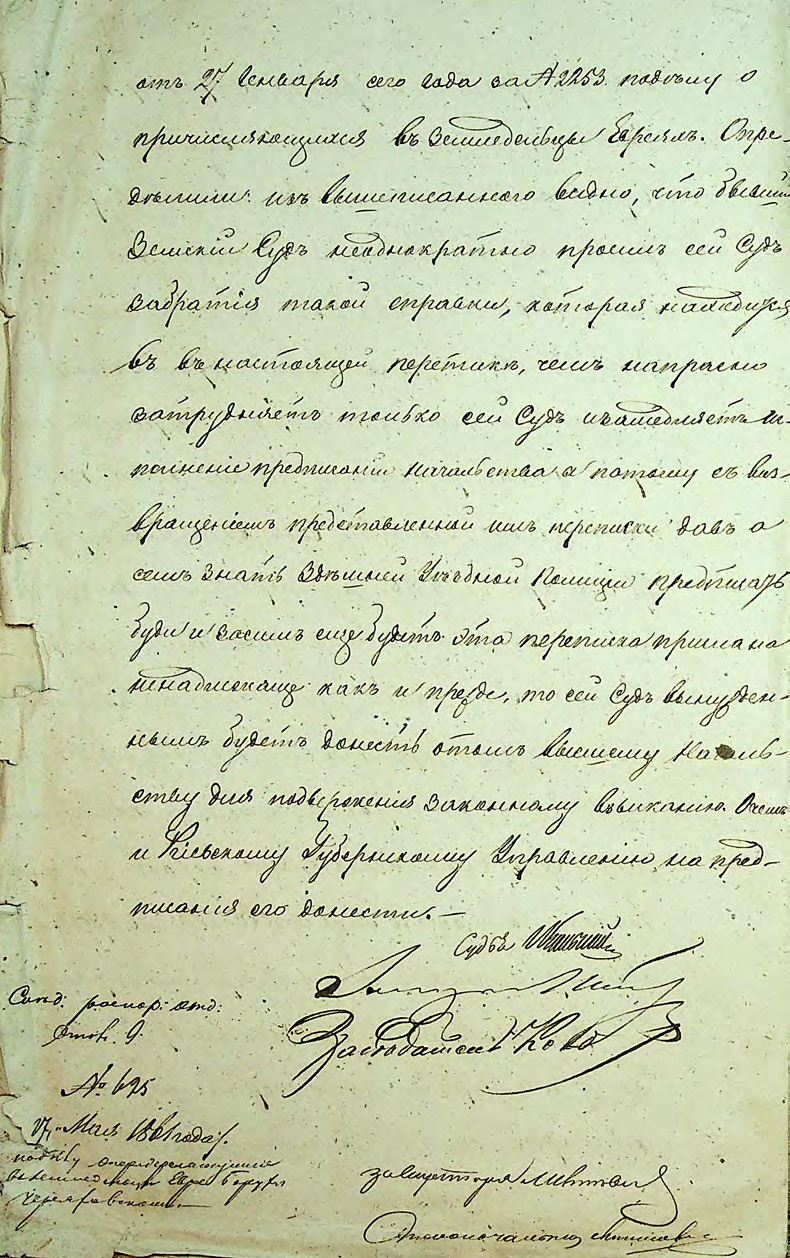 отъ 27 Генваря сего года за № 2253. по дѣлу о
причисляющихся въ Земледельцы Евреяхъ. Опре-
дѣлили: изъ вышеписанного видно, что бывшій
Земскій Судъ неоднократно просилъ сей Судъ
забратія такой справки, которая находится
въ въ настоящей переписке, чемъ напрасно
затрудняетъ только сей Судъ и замедляетъ ис-
полненіе предписаній Начальства а потому съ воз-
вращеніемъ представленной имъ переписки давъ о
семъ знать Здѣшней Уѣздной Полиціи предписать
буди и засимъ еще будетъ эта переписка прислана
ненадлежаще какъ и прежде, то сей Судъ вынужден-
нымъ будетъ донесть о томъ высшему Началь-
ству для подверженія законному взысканію. О чемъ
и Кіевскому Губернскому Управленію на пред-
писанія его донести.—
Судья
Заседатель
отд:
ств. 9.
№ 695
17, Мая 1861 года.
по дѣлу
за Секретаря
Столоначальникъ